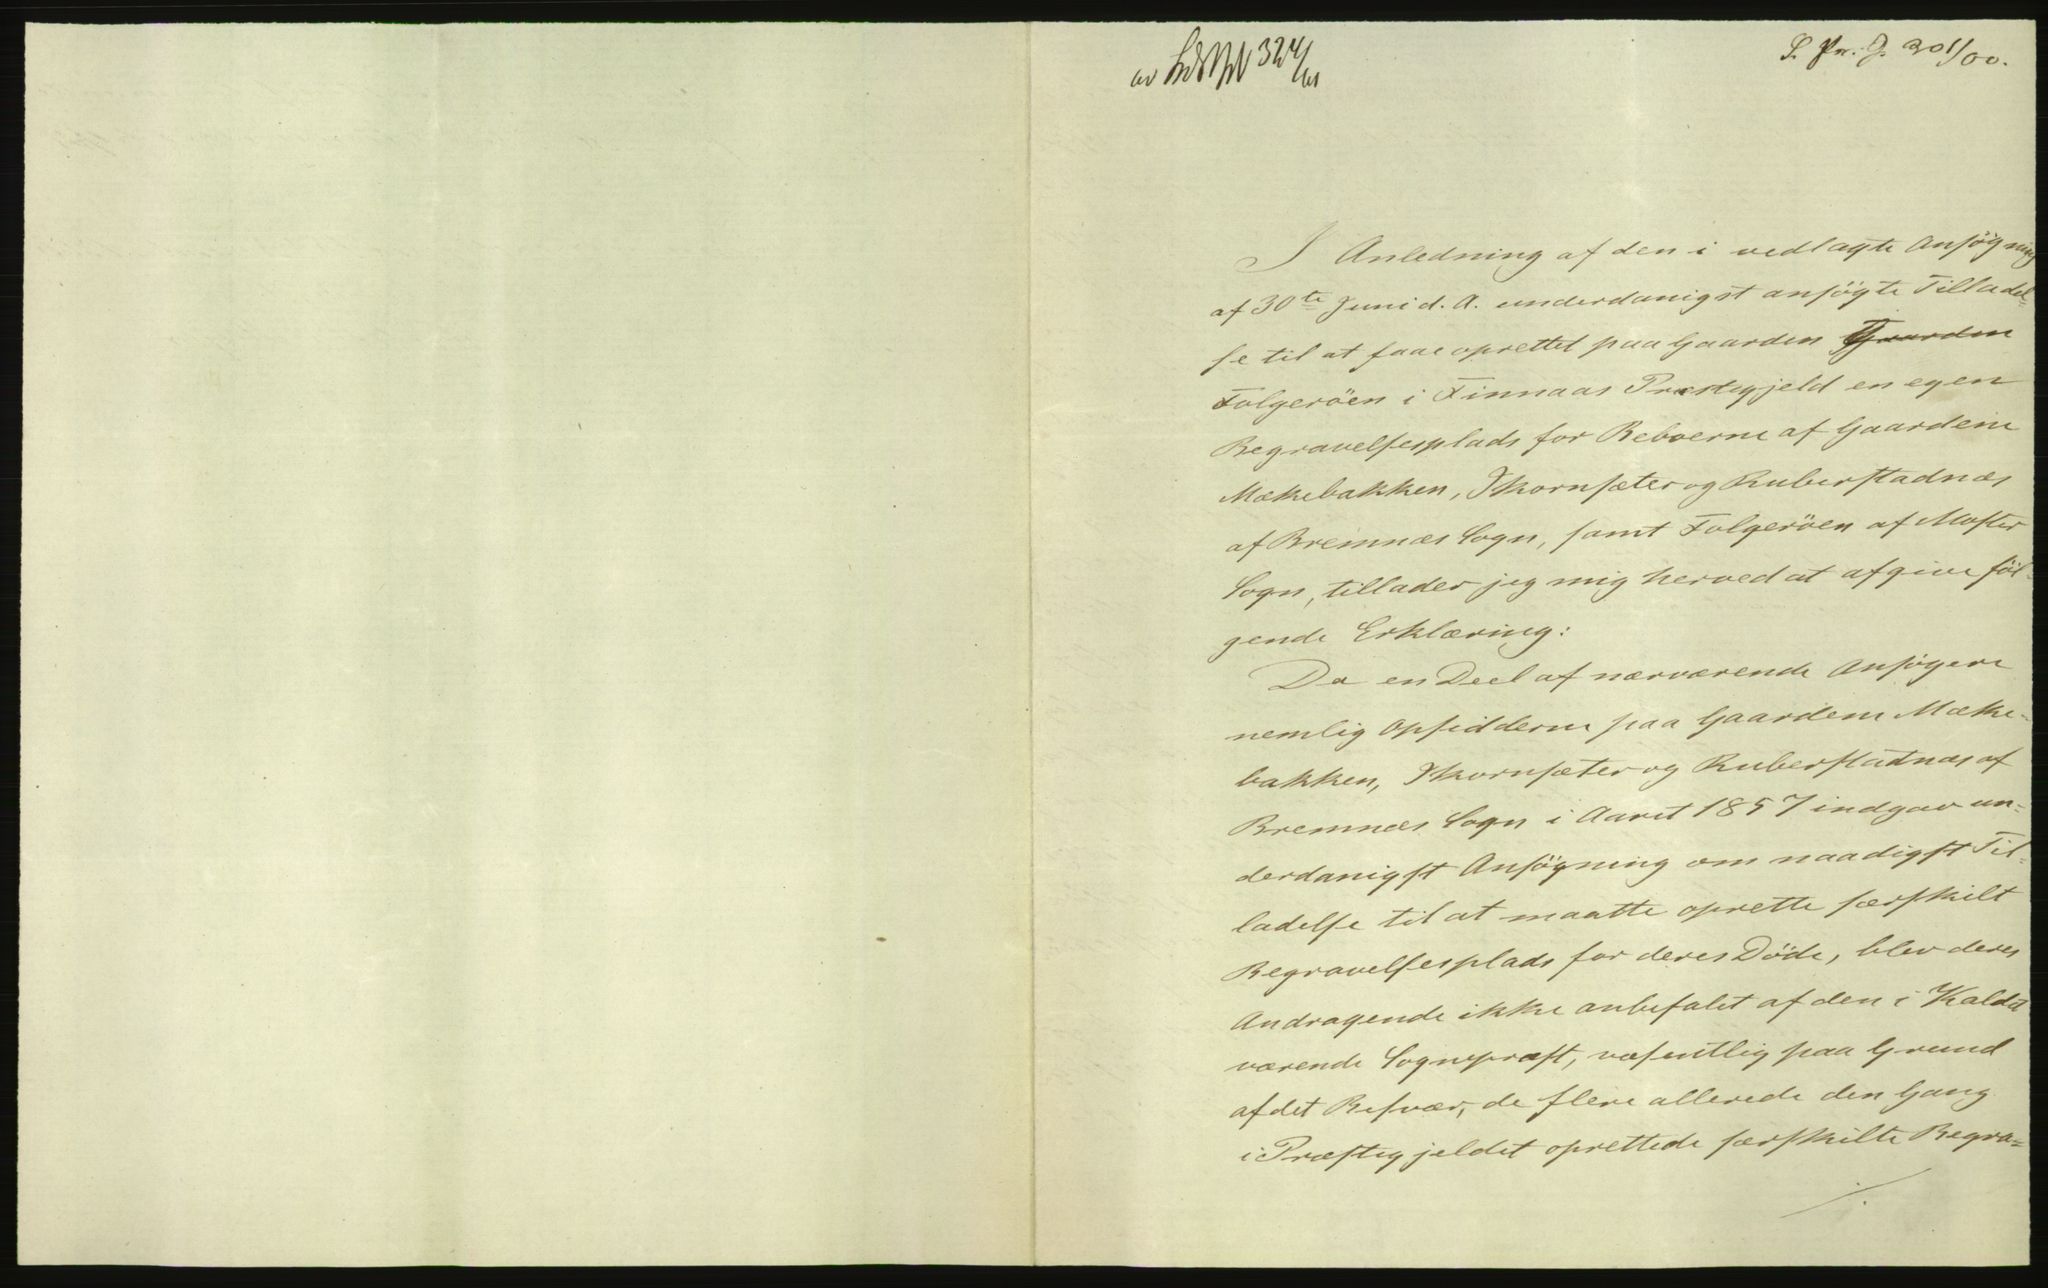 S. Pr. J. 301/60.
I Anledning af den i vedlagte Ansøgning
af 30te Juni d. A. underdanigst ansøgte Tilladel-
se til at faae oprettet paa Gaarden Gaarden
Folgerøen i Finnaas Præstegjeld en egen
Begravelsesplads for Beboerne af Gaardene
Mækebakken, Skornsæter og Ruberstadnæs
af Bremnæs Sogn, samt Folgerøen af Moster
Sogn, tillader jeg mig herved at afgive føl-
gende Erklæring:
Da en Deel af nærværende Ansøgere
nemlig Opsidderne paa Gaardene Mække-
bakken, Skornsæter og Ruberstadnæs af
Bremnæs Sogn i Aaret 1857 indgav un-
derdanigst Ansøgning om naadigst Til-
ladelse til at maatte oprette særskilt
Begravelsesplads for deres Døde, blev deres
Andragende ikke anbefalet af den i Kaldet
værende Sognepræst, væsentlig paa Grund
af det Besvær, de flere allerede den Gang
i Præstegjeldet oprettede særskilte Begra-
./.